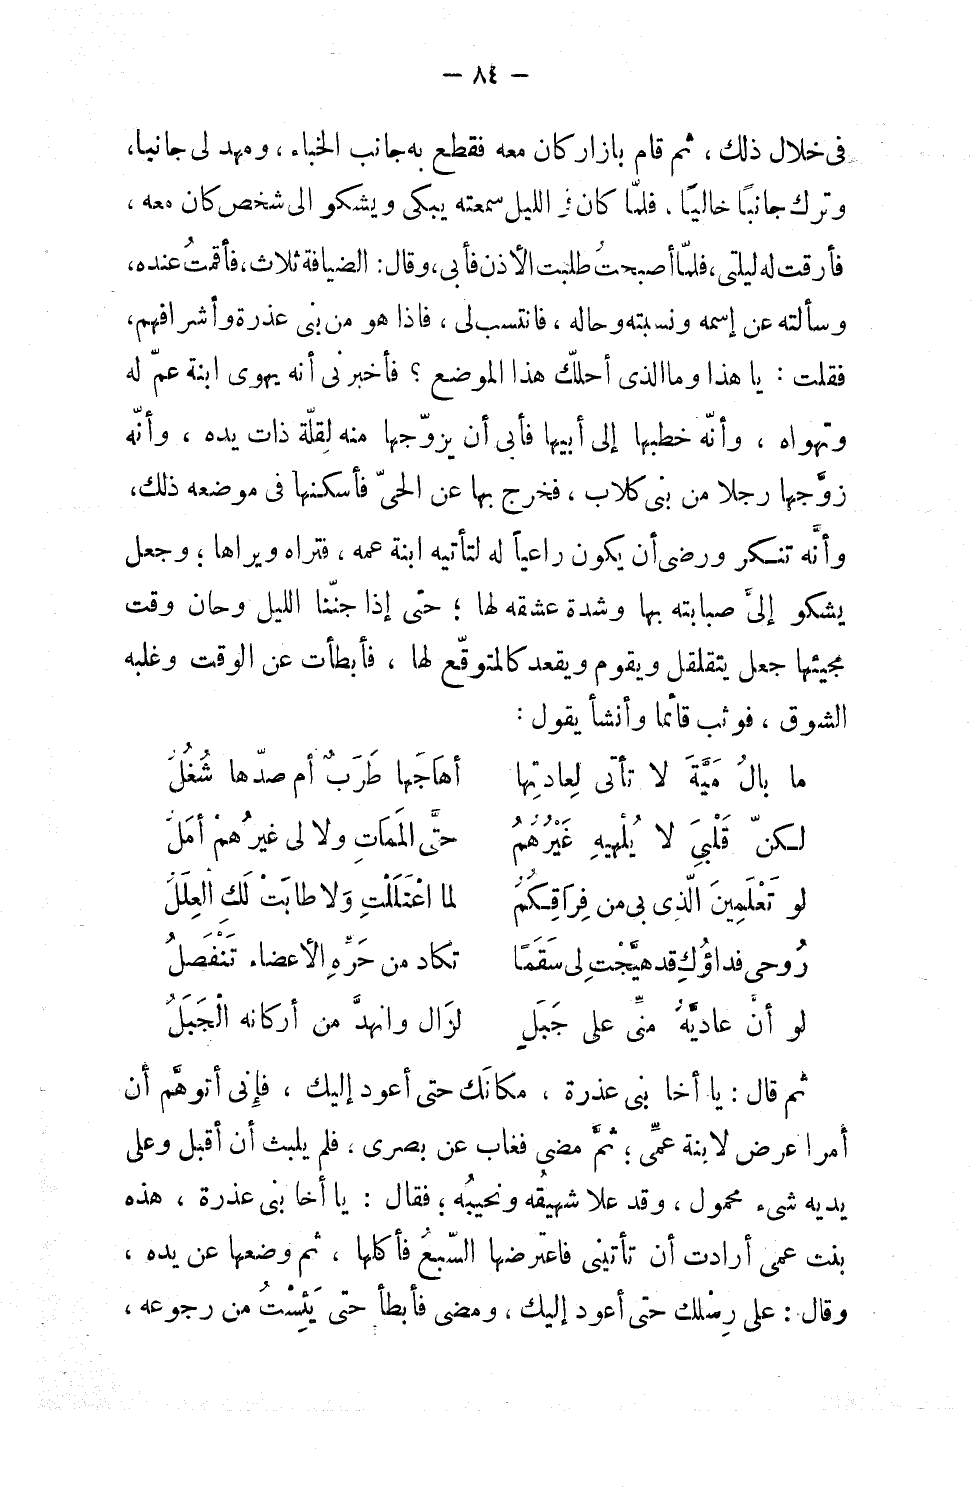 — ٨٤ —
فى خلال ذلك ، ثم قام بازار كان معه فقطع به جانب الخباء ، ومهد لى جانبا،
وترك جانبًا خاليًا . فلمّا كان فى الليل سمعته يبكى ويشكو الى شخص كان معه ،
فأرقت له ليلتى ، فلمّا أصبحتُ طلبت الأذن فأبى ، وقال : الضيافة ثلاث ، فأقمتُ عنده،
وسألته عن إسمه ونسبته وحاله ، فانتسب لى ، فاذا هو من بنى عذرة وأشرافهم،
فقلت : يا هذا وما الذى أحلّك هذا الموضع ؟ فأخبرنى أنه يهوى ابنة عمّ له
وتهواه ، وأنّه خطبها إلى أبيها فأبى أن يزوّجها منه لِقلّة ذات يده ، وأنّه
زوّجها رجلا من بنى كلاب ، فخرج بها عن الحىّ فأسكنها فى موضعه ذلك،
وأنَّه تنكر ورضى أن يكون راعياً له لتأتيه ابنة عمه ، فتراه ويراها ؛ وجعل
يشكو إلىَّ صبابته بها وشدة عشقه لها ؛ حتى إذا جنّنا الليل وحان وقت
مجيئها جعل يتقلقل ويقوم ويقعد كالمتوقّع لها ، فأبطأت عن الوقت وغلبه
الشوق ، فوثب قائما وأنشأ يقول :
ما بالُ مَيَّةَ لا تأتى لِعادتِها أهاجَها طَرَبٌ أم صدّها شُغُلُ
لكنّ قَلْبِىَ لا يُلْهيهِ غَيْرُهُمُ حتَّى المَمَاتِ ولا لى غيرُهمْ أمَلُ
لو تَعْلَمِينَ الّذِى بى من فِراقِكُمُ لما اعْتَلَلْتِ وَلا طابَتْ لَكِ الْعِلَلُ
رُوحى فداؤُكِ قد هيَّجْتِ لى سَقَمًا تكاد من حَرِّهِ الأعضاء تَنْفَصِلُ
لو أنَّ عاديَّهُ منِّى على جَبَلٍ لزَال وانهدَّ من أركانه الْجَبَلُ
ثم قال : يا أخا بنى عذرة ، مكانَك حتى أعود إليك ، فإنى أتوهَّم أن
أمرا عرض لابنة عمِّى ؛ ثمَّ مضى فغاب عن بصرى ، فلم يلبث أن أقبل وعلى
يديه شىء محمول ، وقد علا شهيقُه ونحيبُه ؛ فقال : يا أخا بنى عذرة ، هذه
بنت عمى أرادت أن تأتينى فاعترضها السّبعُ فأكلها ، ثم وضعها عن يده ،
وقال : على رِسْلك حتى أعود إليك ، ومضى فأبطأ حتى يَئِسْتُ من رجوعه ،